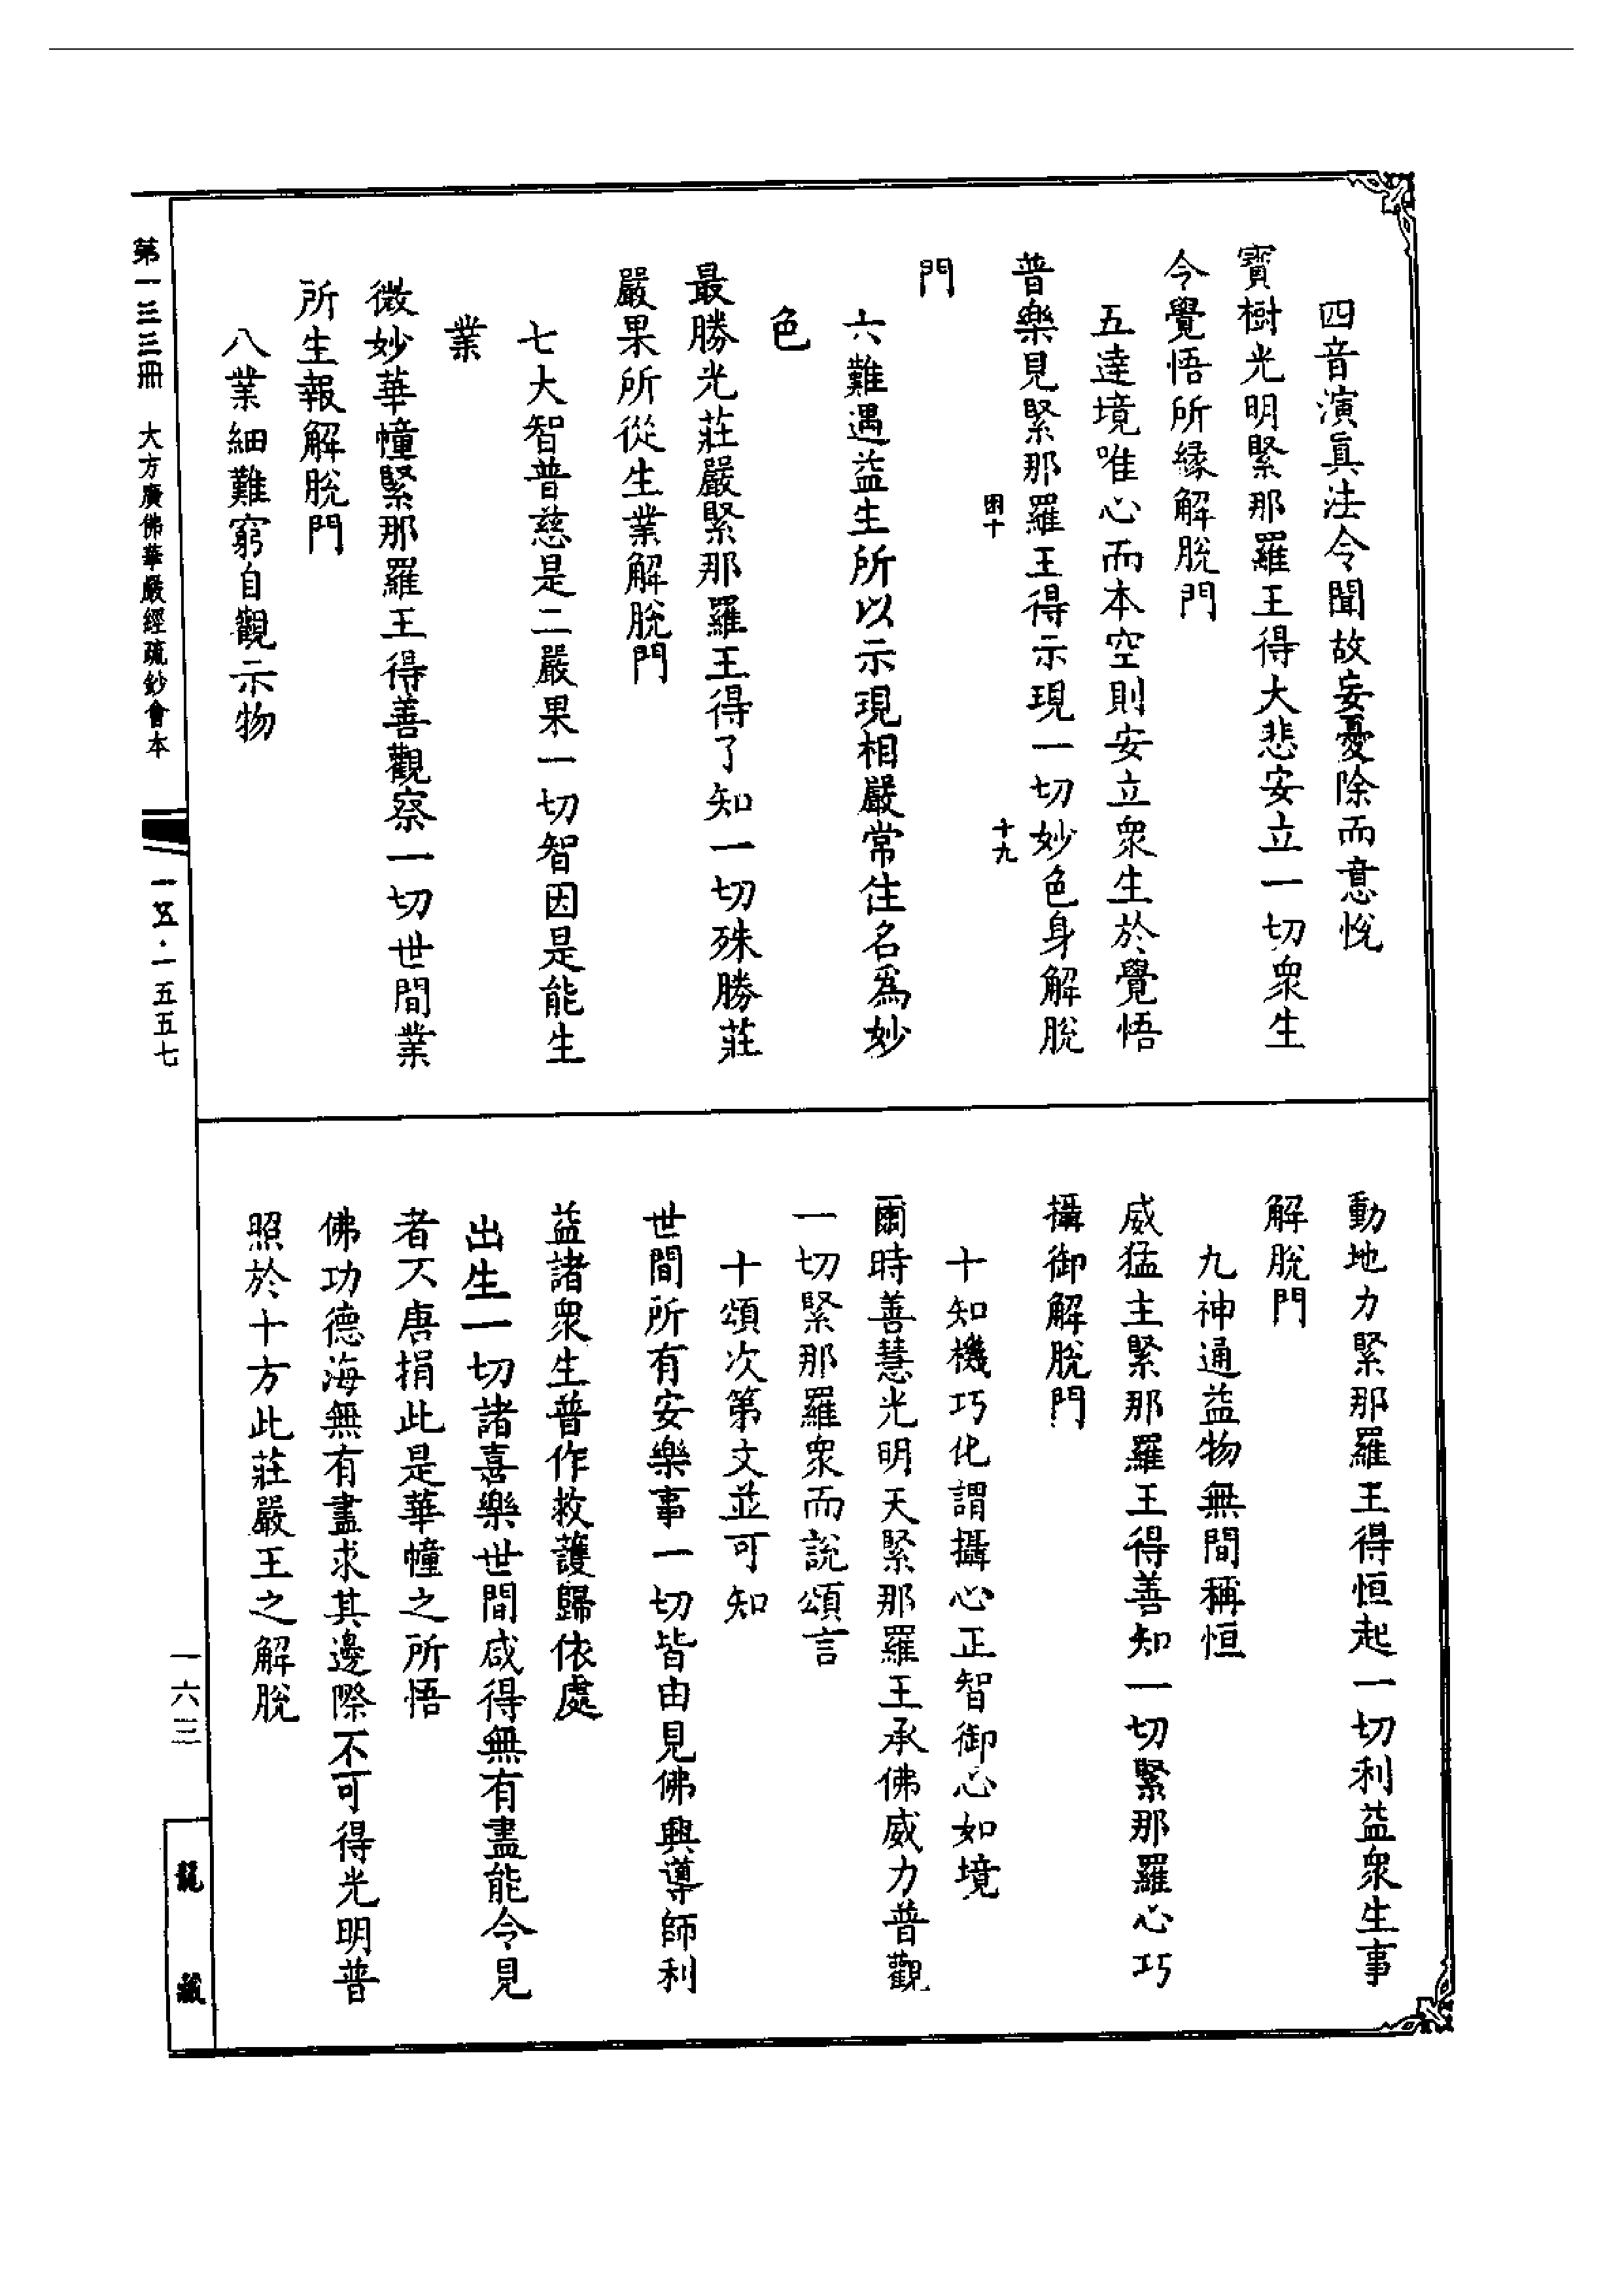 四音演眞法令聞故妄憂除而意悅
寳樹光明緊那羅王得大悲安立一切衆生
令覺悟所縁解脫門
五達境唯心而本空則安立衆生於覺悟
普樂見緊那羅王得示現一切妙色身解脫
困十
十九
門
六難遇益生所以示現相嚴常住名爲妙
色
最勝光莊嚴緊那羅王得了知一切殊勝莊
嚴果所從生業解脫門
七大智普慈是二嚴果一切智因是能生
業
微妙華幢緊那羅王得善觀察一切世間業
所生報解脫門
八業細難窮自觀示物
動地力緊那羅王得恒起一切利益衆生事
解脫門
九神通益物無間稱恒
威猛主緊那羅王得善知一切緊那羅心巧
攝御解脫門
十知機巧化謂攝心正智御心如境
爾時善慧光明天緊那羅王承佛威力普觀
一切緊那羅衆而說頌言
十頌次第文並可知
世間所有安樂事一切皆由見佛興導師利
益諸衆生普作救護歸依處
出生一切諸喜樂世間咸得無有盡能令見
者不唐捐此是華幢之所悟
佛功德海無有盡求其邊際不可得光明普
照於十方此莊嚴王之解脫
第一三三冊 大方廣佛華嚴經疏鈔會本
一五·一五五七
一六三
龍藏